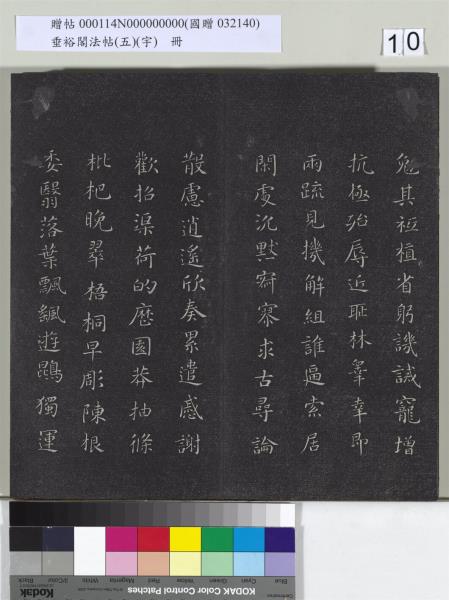 贈帖 000114N000000000(國贈 032140)
垂裕閣法帖(五)(宇) 冊
10
勉其祗植省躬譏誡寵增
抗極殆辱近恥林睾幸即
兩疏見機解組誰逼索居
閑處沉默寂寥求古尋論
散慮逍遙欣奏累遣慼謝
歡招渠荷的歷園莽抽條
枇杷晚翠梧桐早彫陳根
委翳落葉飄颻遊鵾獨運
Blue Cyan Green Yellow Red Magenta White 3/Color Black
Kodak
KODAK Color Control Patches